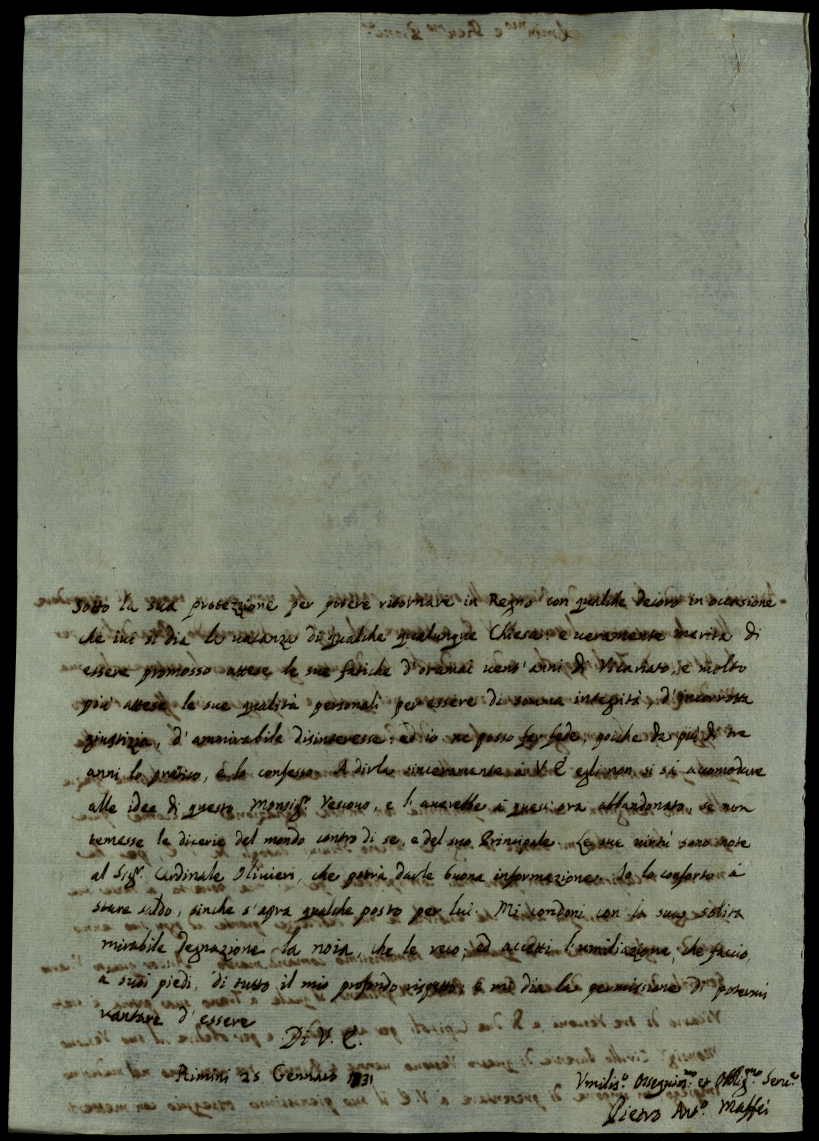 sotto la sua protezzione per potere ritornare in Regno con qualche decoro in occasione
che iui si dia la uacanza di qualche qualunque Chiesa: e ueramente merita di
essere promosso attese le sue fatiche d'oramai uent'anni di Vicariato, e molto
più attese le sue qualità personali per essere di somma integrità, d'incorrotta
giustizia, d'ammirabile disinteresse: ed io ne posso far fede, poiche da più di tre
anni lo pratico, e lo confesso. A dirla sinceramente à V. E. egli non si sà accomodare
alle idee di questo Monsig.r Vescouo, e l'auerebbe à quest'ora abbandonato, se non
temesse le dicerie del mondo contro di se, e del suo Principale. Le sue uirtù sono note
al Sig.r Cardinale Oliuieri, che potrà darle buona informazione. Io lo conforto à
stare saldo, sinche s'apra qualche posto per lui. Mi condoni con la sua solita
mirabile degnazione la noia, che le reco; ed accetti l'umiliazione, che faccio,
a suoi piedi, di tutto il mio profondo rispetto; e mi dia la permissione di potermi
vantare d'essere
Di V. E.
Rimini 25 Gennaro 1731
Vmilis.o Ossequios.mo et Obblig.mo Seru.e
Pietro Ant.o Maffei